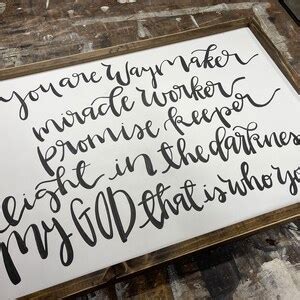 You are Way maker
miracle worker
promise keeper
light in the darkness
my GOD that is who yo